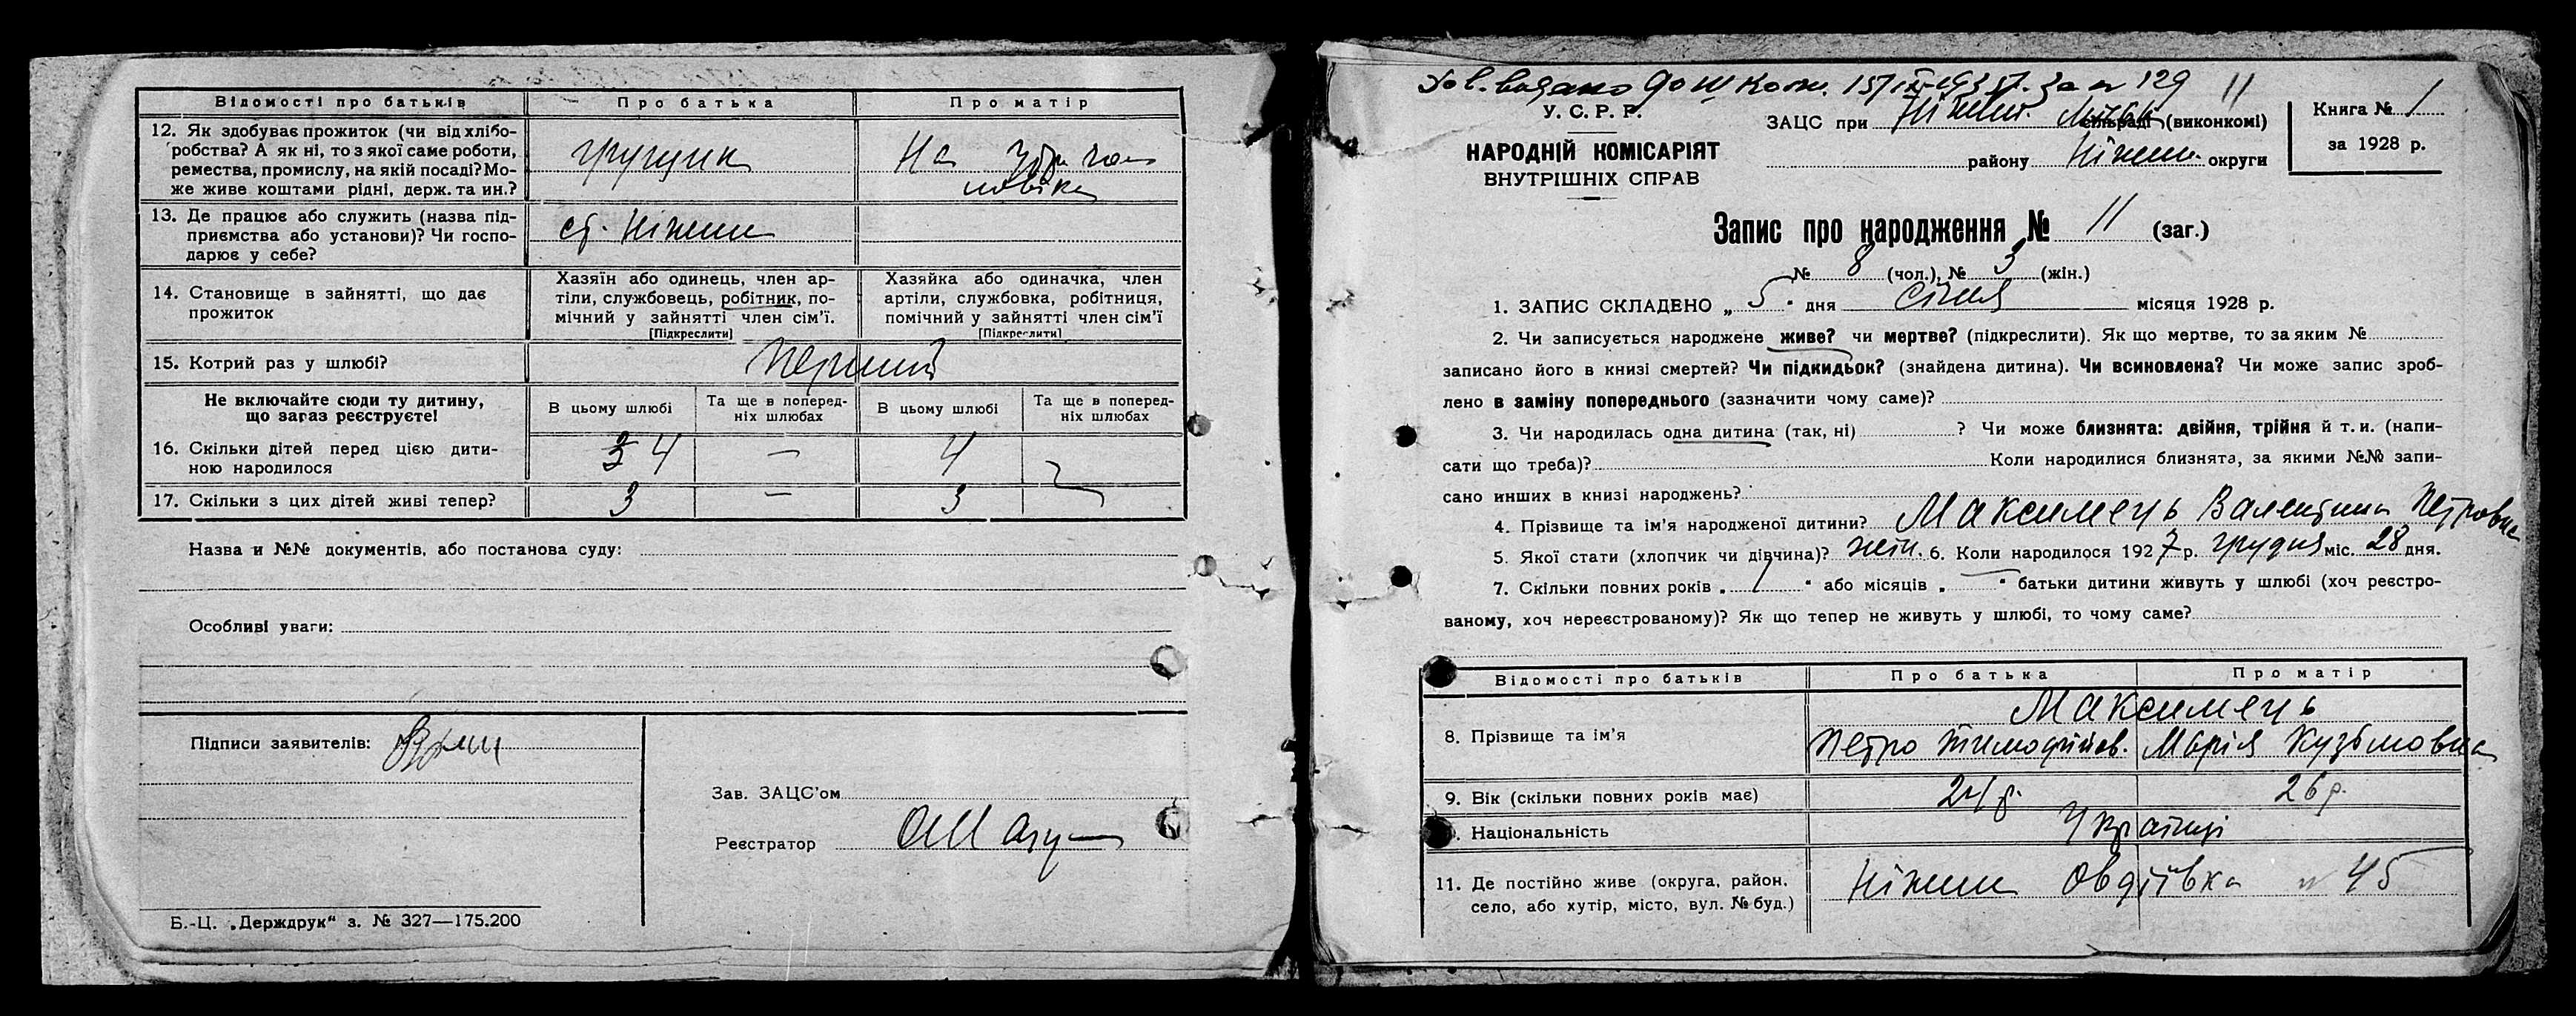 Відомості про батьків
Про батька
Про матір
12. Як здобуває прожиток (чи від хлібо-
робства? А як ні, то з якої саме роботи,
ремества, промислу, на якій посаді? Мо-
же живе коштами рідні, держ. та ин.?
На
13. Де працює або служить (назва під-
приємства або установи)? Чи госпо-
дарює у себе?
ст. Ніжин
14. Становище в зайнятті, що дає
прожиток
Хазяїн або одинець, член ар-
тіли, службовець, робітник, по-
мічний у зайнятті член сім'ї.
[Підкреслити]
Хазяйка або одиначка, член
артіли, службовка, робітниця,
помічний у зайнятті член сім'ї
[Підкреслити]
15. Котрий раз у шлюбі?
перший
Не включайте сюди ту дитину,
що зараз реєструєте!
В цьому шлюбі
Та ще в поперед-
ніх шлюбах
В цьому шлюбі
Та ще в поперед-
ніх шлюбах
16. Скільки дітей перед цією дити-
ною народилося
4 — 4
17. Скільки з цих дітей живі тепер?
3 — 3
Назва и №№ документів, або постанова суду:
Особливі уваги:
Підписи заявителів:
Зав. ЗАЦС'ом
Реєстратор
Б.-Ц. „Держдрук“ з. № 327—175.200
видано до школи за № 129
11
У. С. Р. Р.
НАРОДНІЙ КОМІСАРІЯТ
ВНУТРІШНІХ СПРАВ
ЗАЦС при Ніжин. сільраді (виконкомі)
району Ніжин. округи
Книга № 1
за 1928 р.
Запис про народження № 11 (заг.)
№ 8 (чол.), № 3 (жін.)
1. ЗАПИС СКЛАДЕНО „ 5 “ дня січня місяця 1928 р.
2. Чи записується народжене живе? чи мертве? (підкреслити). Як що мертве, то за яким №
записано його в книзі смертей? Чи підкидьок? (знайдена дитина). Чи всиновлена? Чи може запис зроб-
лено в заміну попереднього (зазначити чому саме)?
3. Чи народилась одна дитина (так, ні) ? Чи може близнята: двійня, трійня й т. и. (напи-
сати що треба)? Коли народилися близнята, за якими №№ запи-
сано инших в книзі народжень?
4. Прізвище та ім'я народженої дитини? Максимець Валентина Петровна
5. Якої стати (хлопчик чи дівчина)? жін. 6. Коли народилося 1927 р. грудня міс. 28 дня.
7. Скільки повних років „ 7 “ або місяців „ — “ батьки дитини живуть у шлюбі (хоч реєстро-
ваному, хоч нереєстрованому)? Як що тепер не живуть у шлюбі, то чому саме?
Відомості про батьків
Про батька
Про матір
8. Прізвище та ім'я
Максимець
Петро Тимофійов.
Марія Кузьмовна
9. Вік (скільки повних років має)
26 р.
Національність
Українці
11. Де постійно живе (округа, район,
село, або хутір, місто, вул. № буд.)
Ніжин Овдіївка № 45